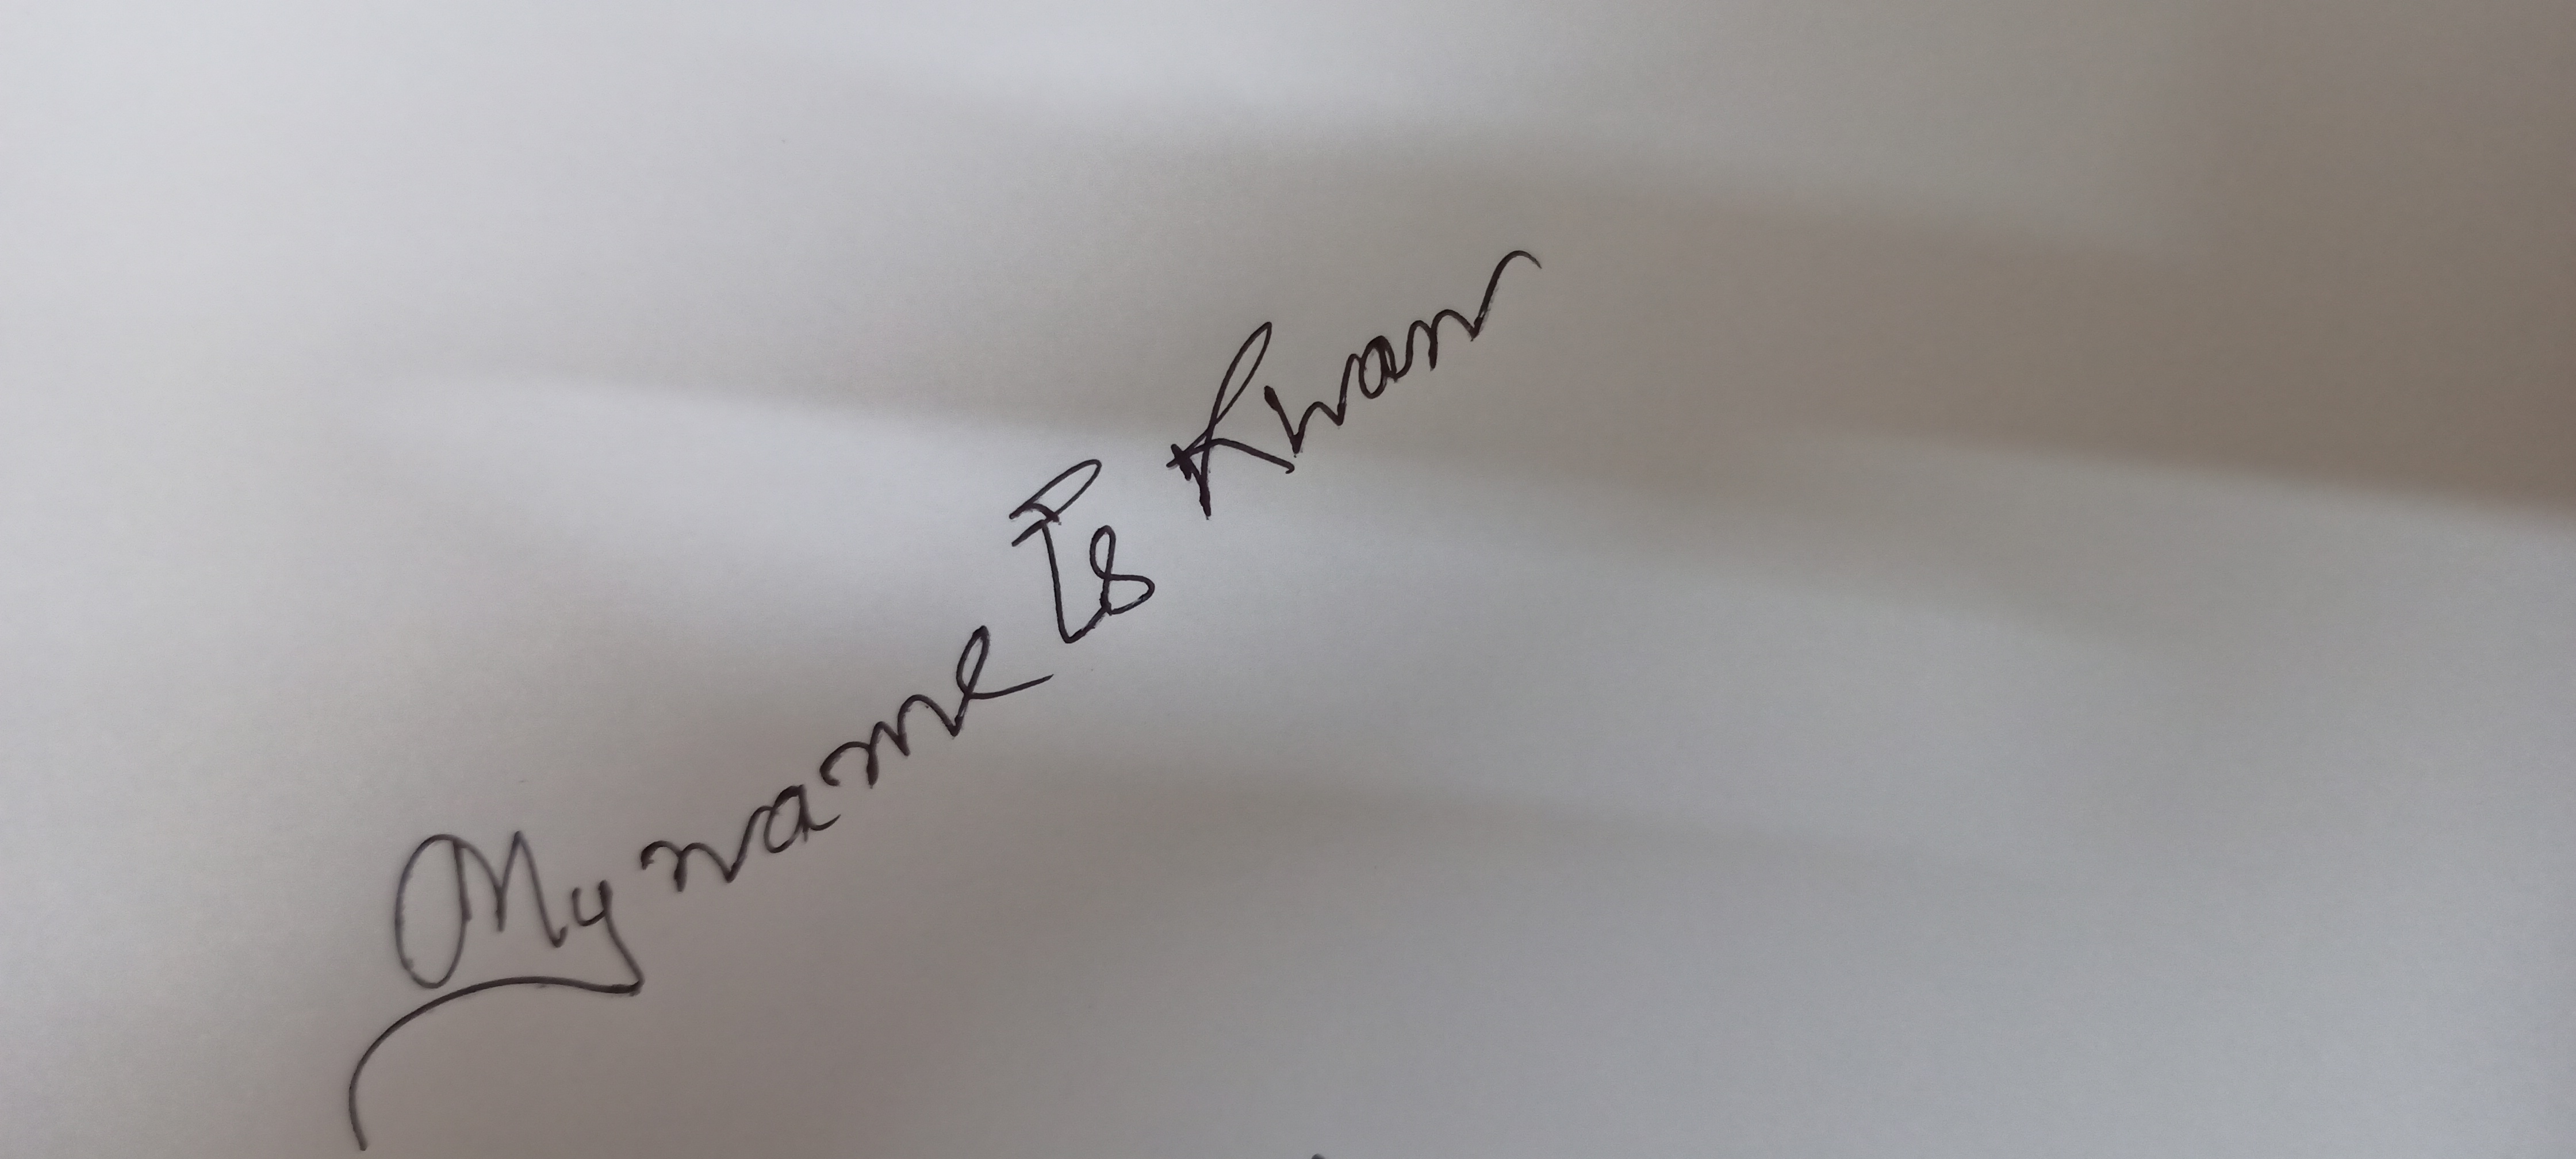 My name Is Khan